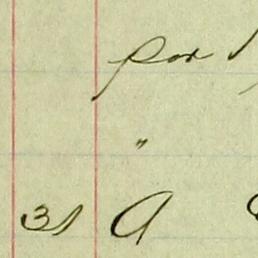 por
"
31 A